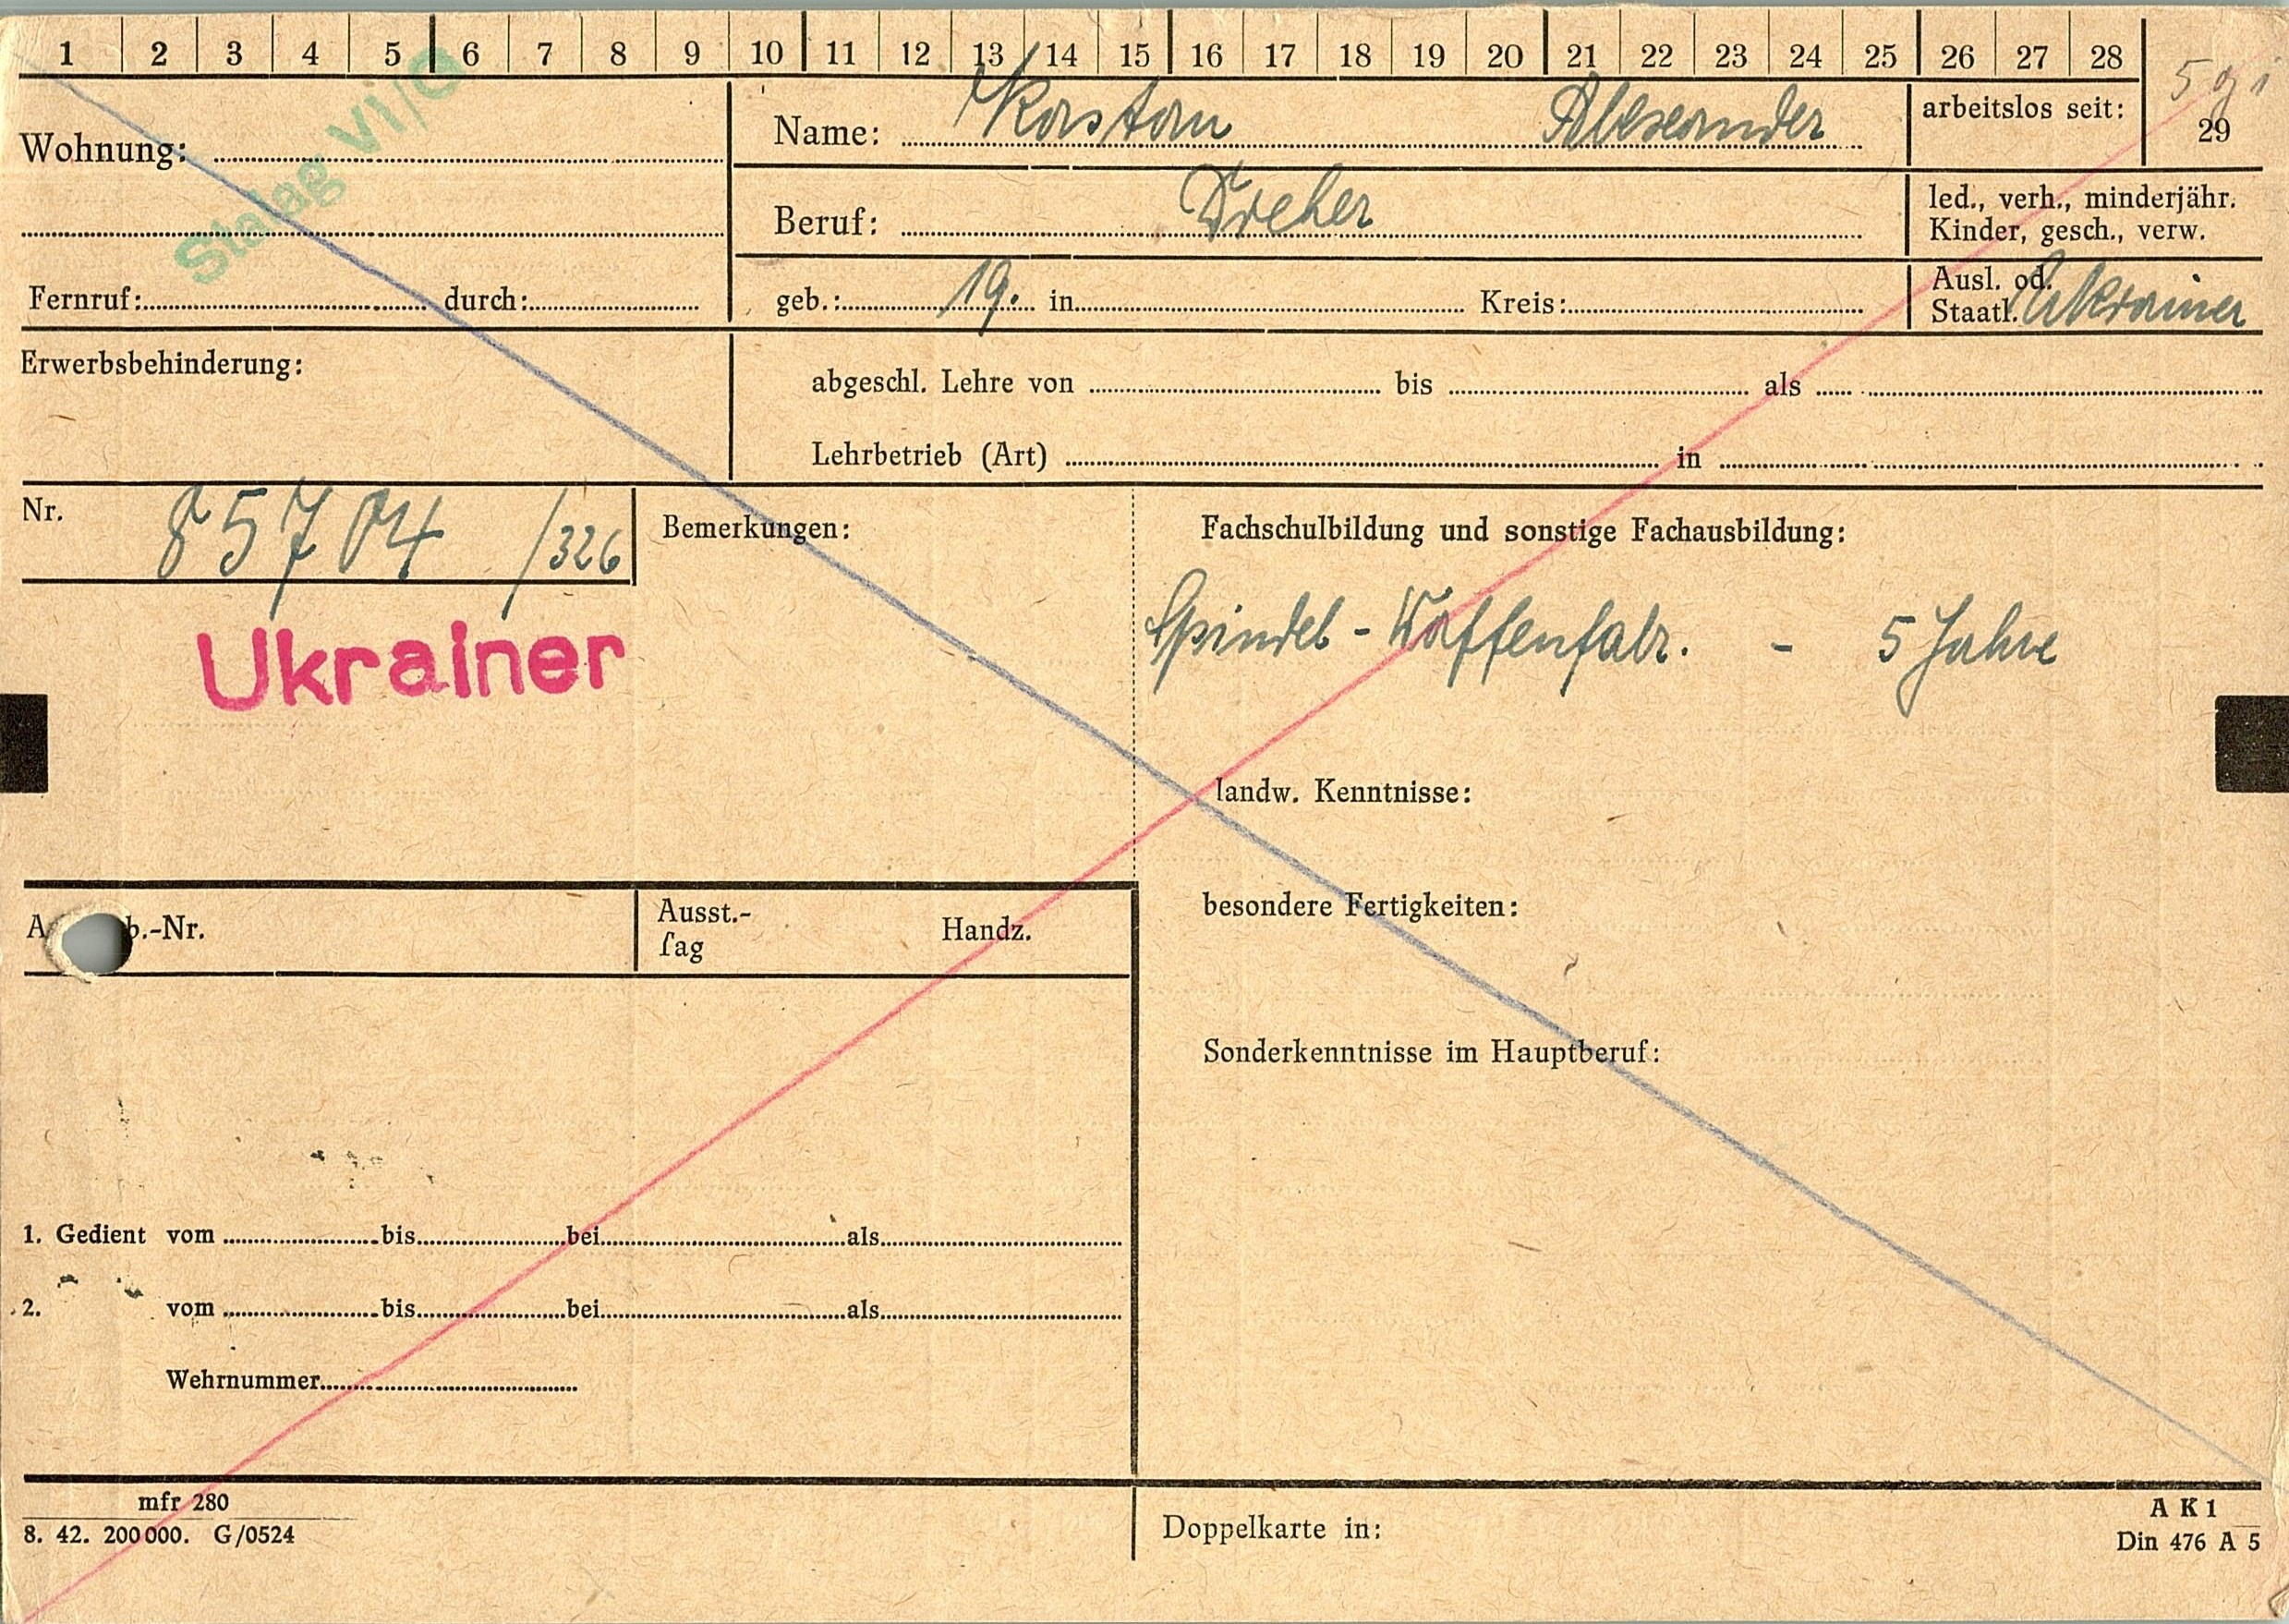 1 2 3 4 5 6 7 8 9 10 11 12 13 14 15 16 17 18 19 20 21 22 23 24 25 26 27 28
29
Stalag VI/C
Wohnung:
Name: Korstan Alexander
arbeitslos seit:
Beruf: Dreher
led., verh., minderjähr.
Kinder, gesch., verw.
Fernruf: durch:
geb.: 19. in Kreis:
Ausl. od.
Staatl. Ukrainer
Erwerbsbehinderung:
abgeschl. Lehre von bis als
Lehrbetrieb (Art) in
Nr. 85704 /326
Bemerkungen:
Fachschulbildung und sonstige Fachausbildung:
Spindel - Waffenfabr. - 5 Jahre
Ukrainer
landw. Kenntnisse:
besondere Fertigkeiten:
Sonderkenntnisse im Hauptberuf:
b.-Nr.
Ausst.-
Tag
Handz.
1. Gedient vom bis bei als
2. vom bis bei als
Wehrnummer
mfr 280
8. 42. 200000. G/0524
Doppelkarte in:
A K 1
Din 476 A 5